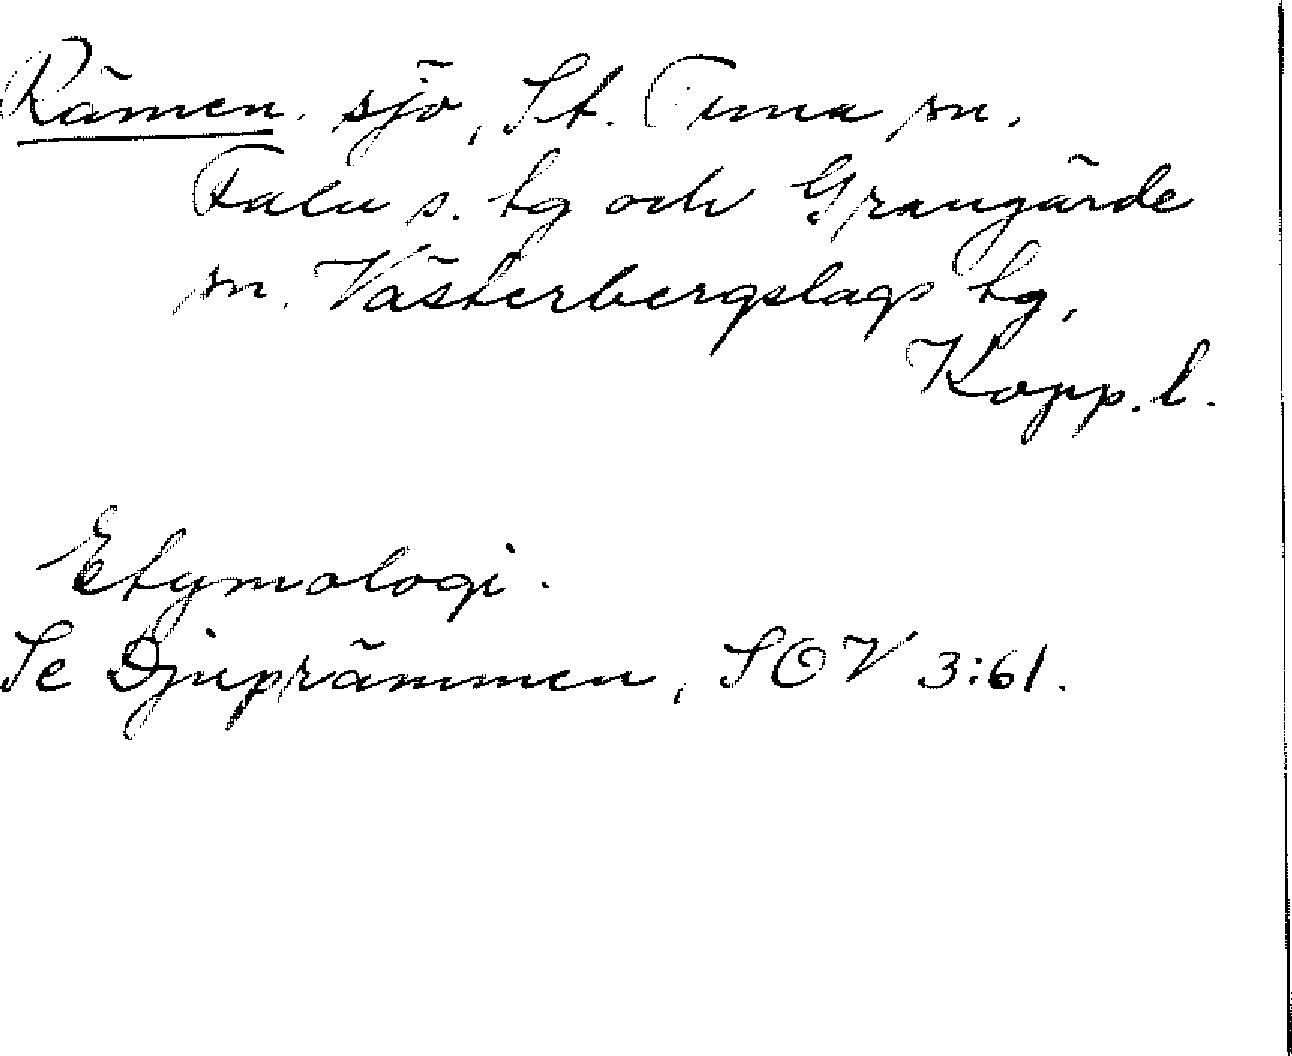 Rämen, sjö, St. Tuna sn.
Falu s. tg och Grangärde
sn. Västerbergslags tg,
Kopp. l.
Etymologi.
Se Djuprämmen, SOV 3:61.